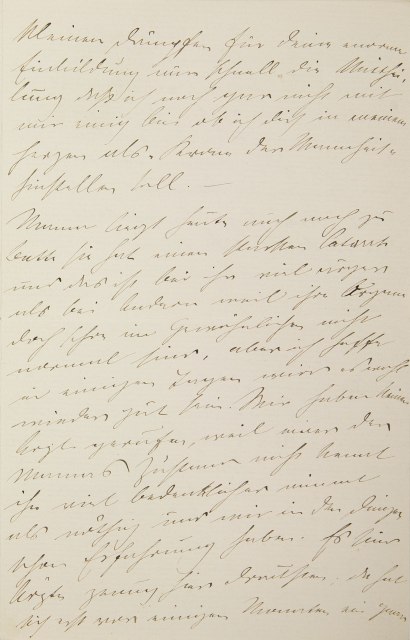 Kleinen Dämpfer für deine enorme
Einbildung nur schnell die Mitthei-
lung daß ich noch gar nicht mit
mir einig bin ob ich dich in meinem
Herzen als Krone der Mannheit
hinstellen soll. —
Mama liegt heute auch noch zu
Bette sie hat einen starken Catarrh
und das ist bei ihr viel ärger
als bei Andern weil ihre Organe
doch schon im Gewöhnlichen nicht
normal sind, aber ich hoffe
in einigen Tagen wird es wohl
wieder gut sein. Wir haben keinen
Arzt gerufen, weil wenn der
Mamas Zustand nicht kennt
ihn viel bedenklicher nimmt
als nöthig und wir in den Dingen
schon Erfahrung haben. Es sind
Ärzte genug hier draußen, da hat
sich erst vor einigen Monaten ein